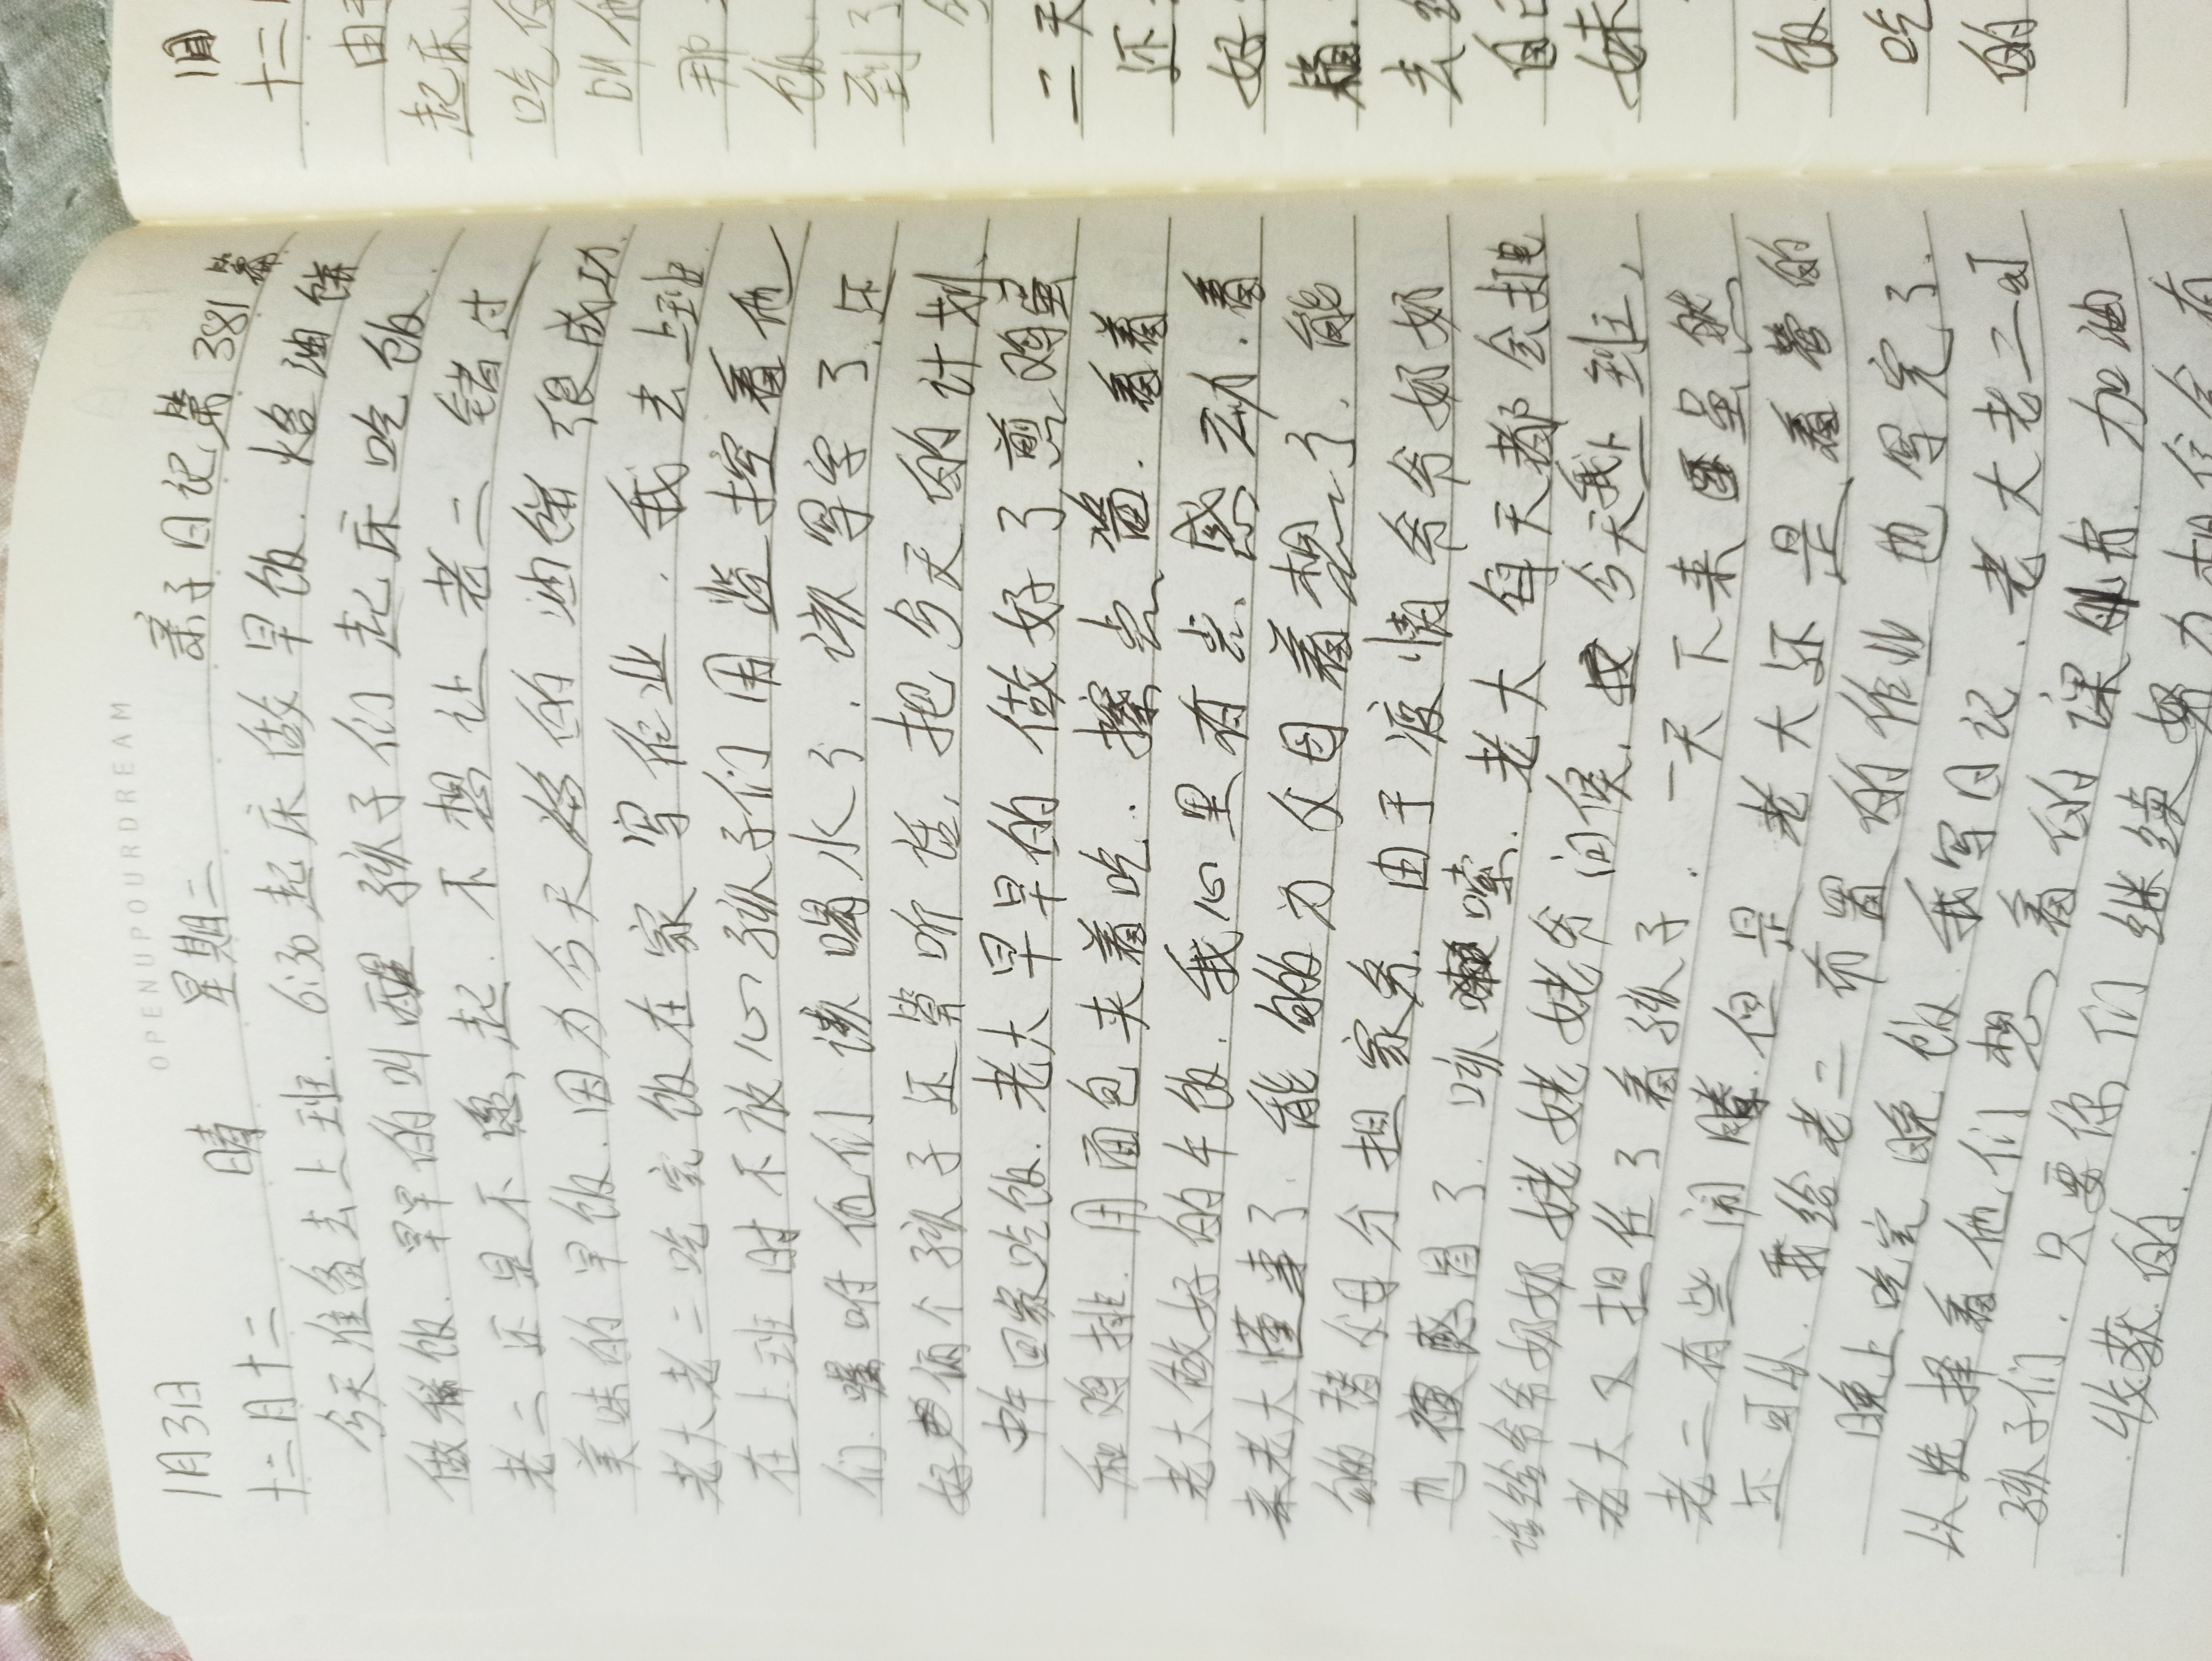 OPENUPOURDREAM
1月3日 晴 星期二 亲子日记第381篇
十二月十二
今天准备去上班. 6:30起床做早饭. 烙油饼
做稀饭. 早早的叫醒孩子们起床吃饭.
老二还是不愿起. 不想让老二错过
美味的早饭. 因为今天烙的油饼很成功.
老大老二吃完饭在家写作业. 我去上班
在上班时不放心孩子们用监控看他
们. 嘱咐他们该喝水了. 该写字了. 还
好俩个孩子还算听话. 把今天的计划
中午回家吃饭. 老大早早的做好了煎鸡蛋
和鸡排. 用面包夹着吃. 擦点酱. 看着
老大做好的午饭. 我心里有点感动. 看
来老大懂事了. 能够为父母着想了. 能
够替父母分担家务. 由于疫情爷爷奶奶
也感冒了. 咳嗽. 老大每天都会打电
话给爷爷奶奶姥姥姥爷问候. 今天我上班,
老大又担任了看孩子. 一天下来虽然
老二有些闹腾. 但是老大还是看管的
还可以. 我给老二布置的作业也写完了.
晚上吃完晚饭. 我写日记. 老大老二可
以选择看他们想看的课外书. 加油
孩子们. 只要你们继续努力相信会有
收获的.
1月
十二
由于
起床
吃饭
叫他
那
饭.
到了
二天
还
好
去给
自己
妹
饭
吃
的